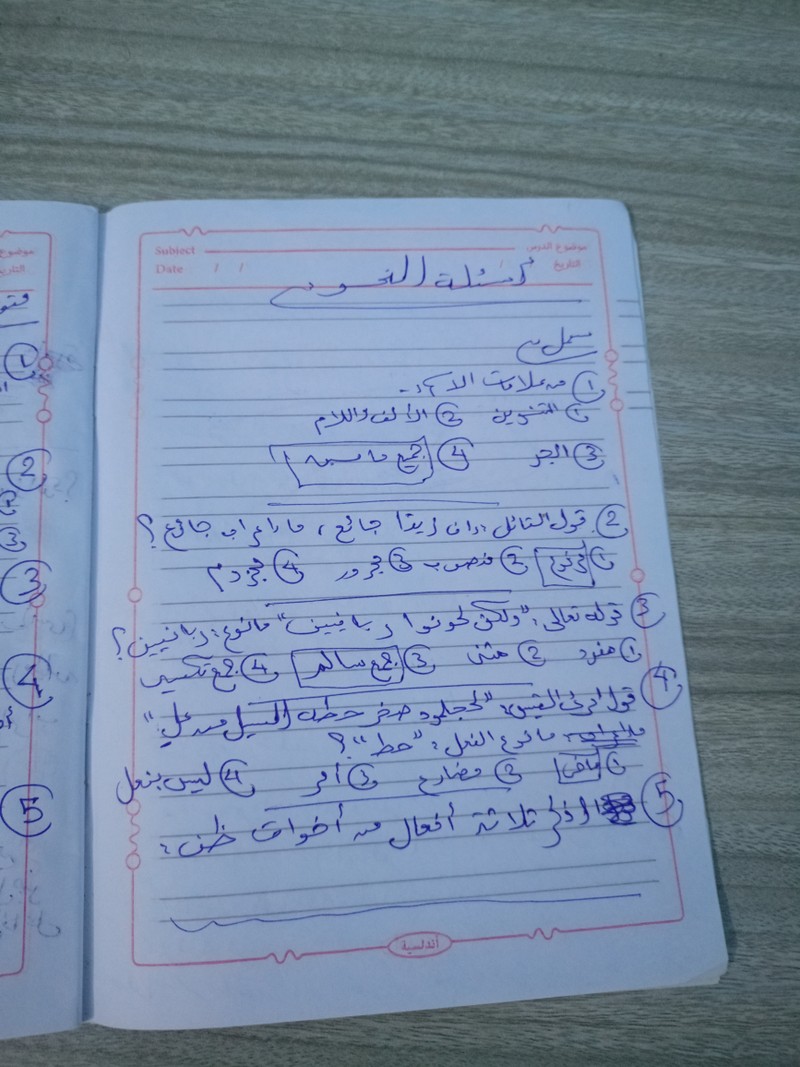 Subject موضوع الدرس
Date / / التاريخ /
أسئلة النحو
سهل
① من علامات الاسم:
① التنوين ② الألف واللام
③ الجر ④ جمع
② قول القائل: إن زيدًا جائع، ما إعراب جائع؟
① مرفوع ② منصوب ③ مجرور ④ مجزوم
③ قوله تعالى: "ولكن كونوا ربانيين" ما نوع: ربانيين؟
① مفرد ② مثنى ③ جمع سالم ④ جمع تكسير
④ قول امرئ القيس: "كجلمود صخر حطه السيل من علِ"
ما نوع الفعل: "حط"؟
① ماضي ② مضارع ③ أمر ④ ليس بفعل
⑤ اذكر ثلاثة أفعال من أخوات ظن:
أندلسية
موضوع
التاريخ
①
②
③
③
④
⑤